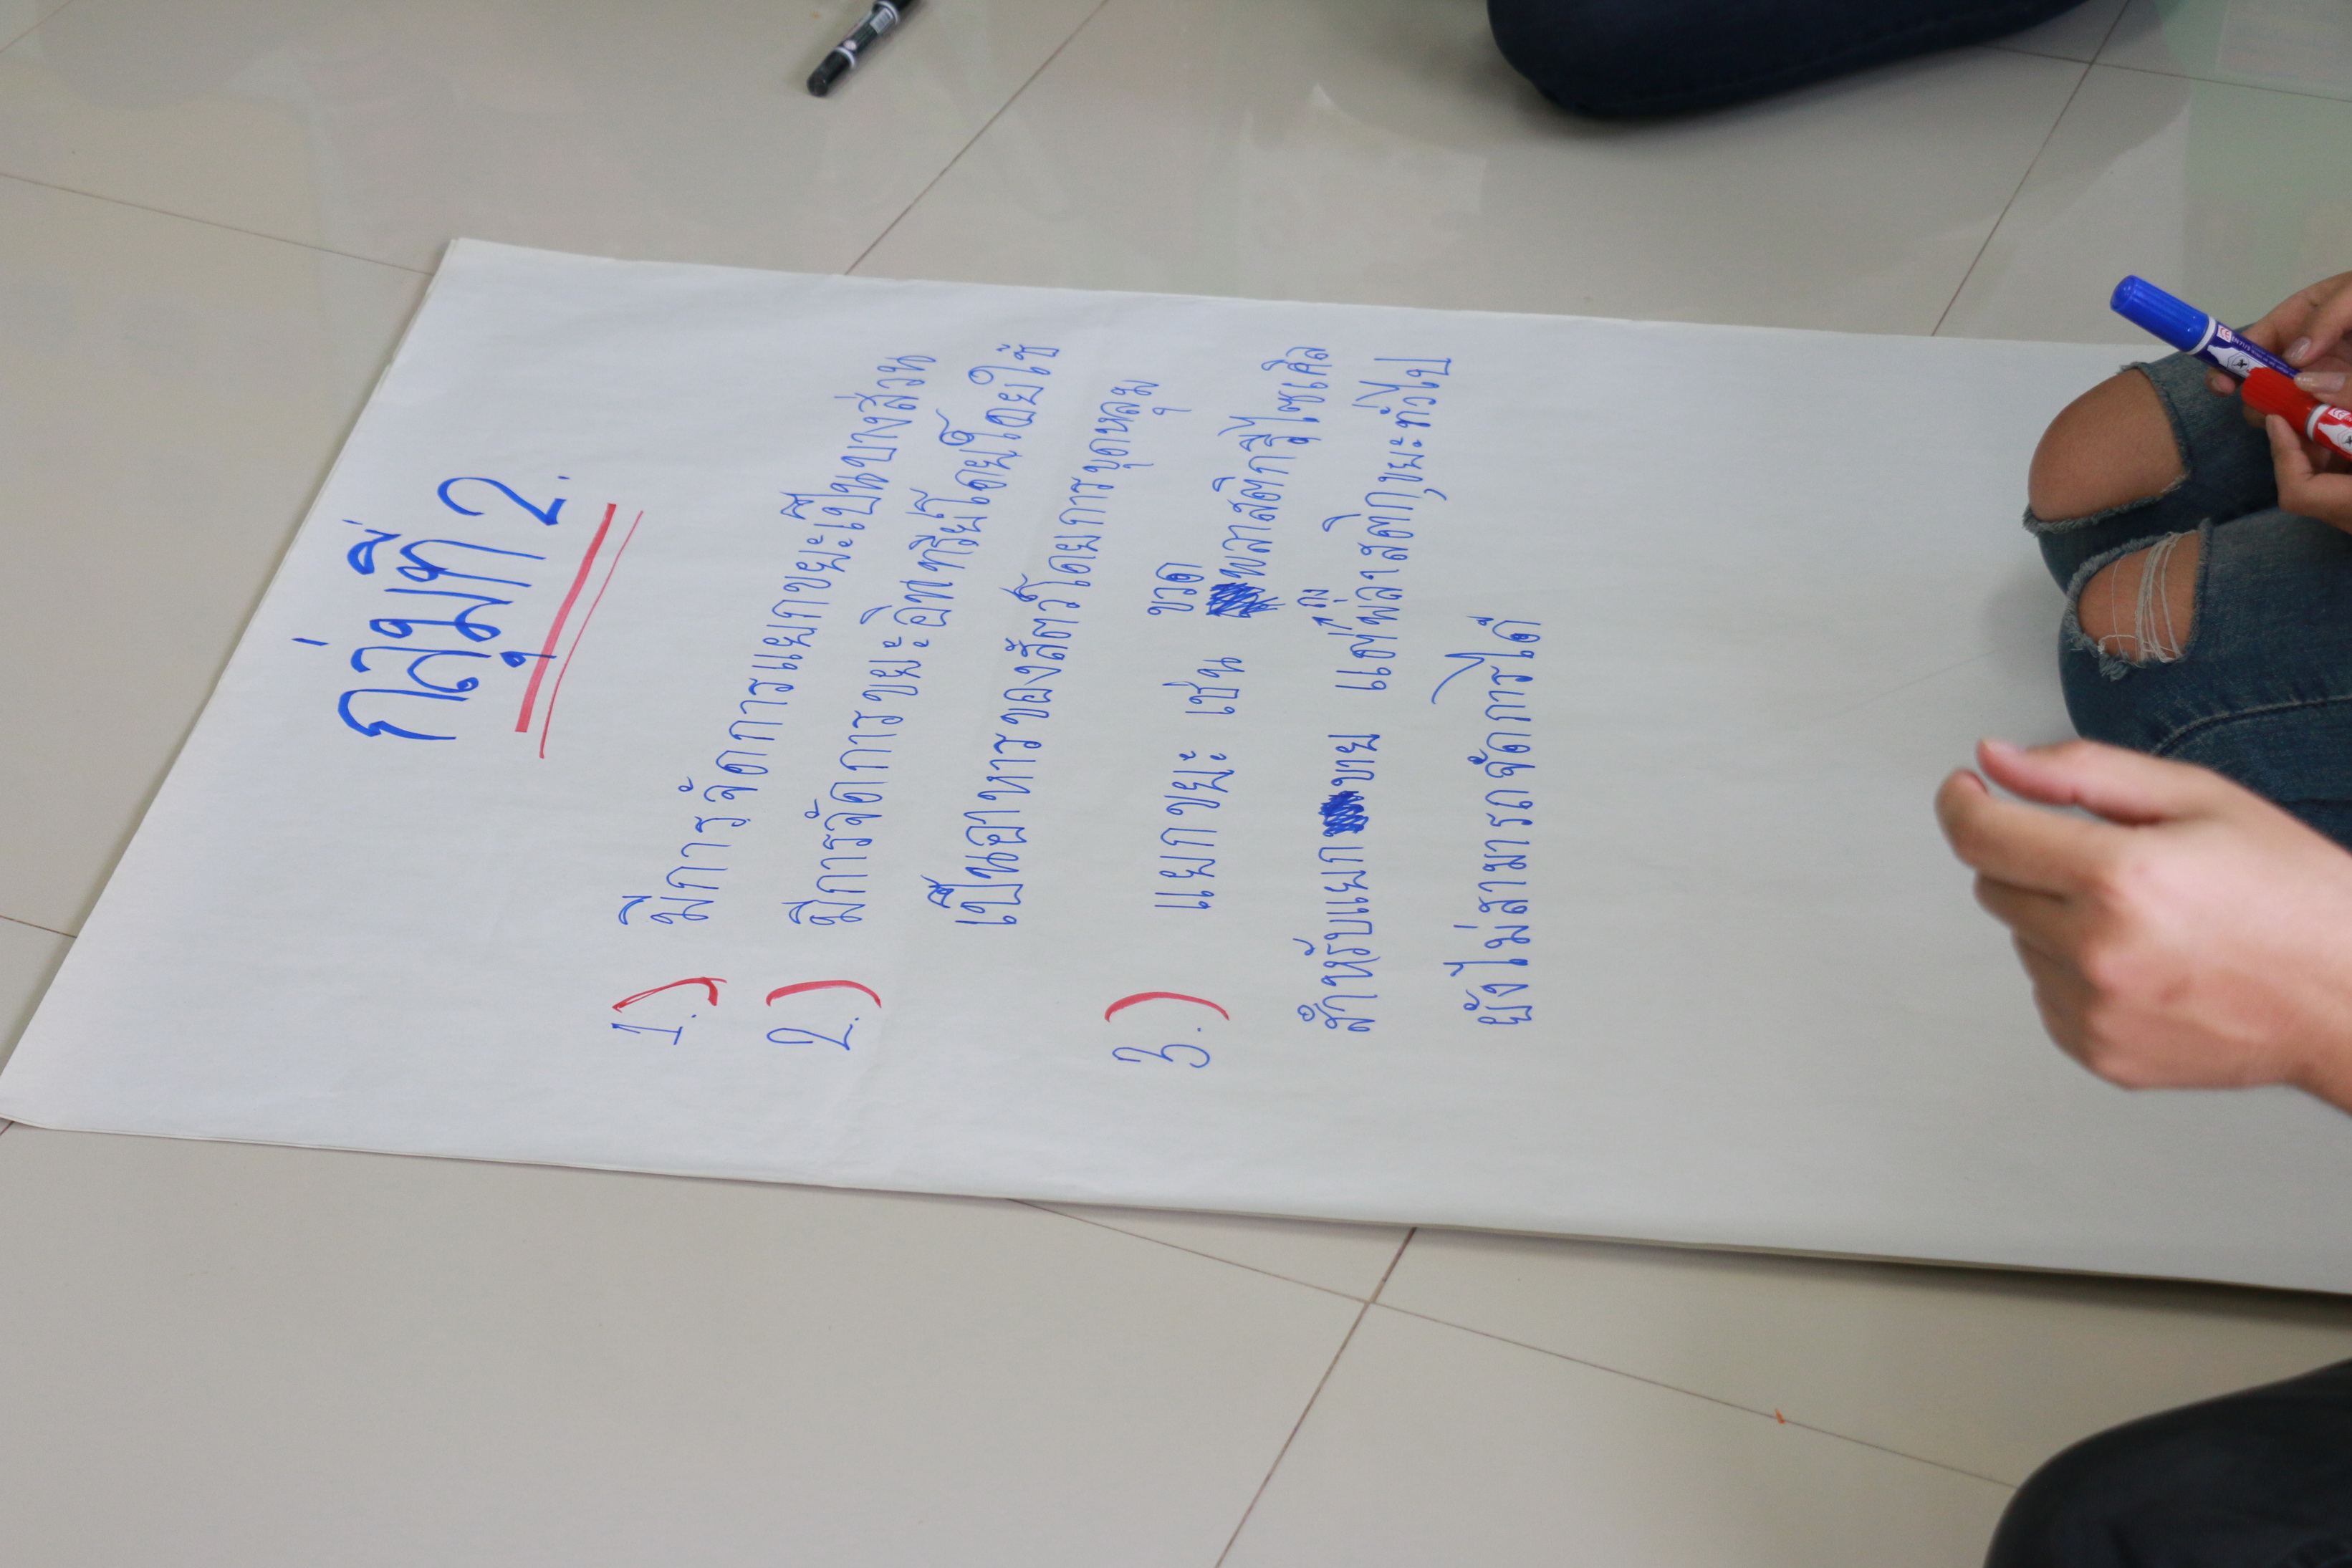 กลุ่มที่ 2.
1.) มีการจัดการแยกขยะเป็นบางส่วน
2.) มีการจัดการขยะอินทรีย์โดยโดยใช้
เป็นอาหารของสัตว์โดยการขุดหลุม
3.) แยกขยะ เช่น ขวดพลาสติกรีไซเคิล
สำหรับแยกขาย แต่ถุงพลาสติกขยะทั่วไป
ยังไม่สามารถจัดการได้